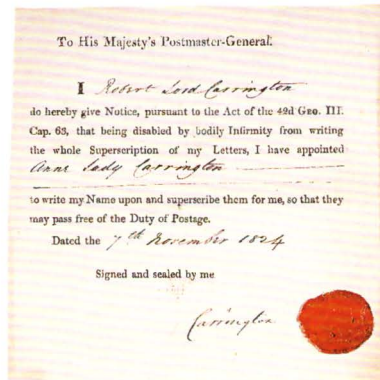 To His Majesty's Postmaster-General.
I Robert Lord Carrington
do hereby give Notice, pursuant to the Act of the 42d Geo. III.
Cap. 63, that being disabled by bodily Infirmity from writing
the whole Superscription of my Letters, I have appointed
Anne Lady Carrington
to write my Name upon and superscribe them for me, so that they
may pass free of the Duty of Postage.
Dated the 7th November 1824
Signed and sealed by me
Carrington